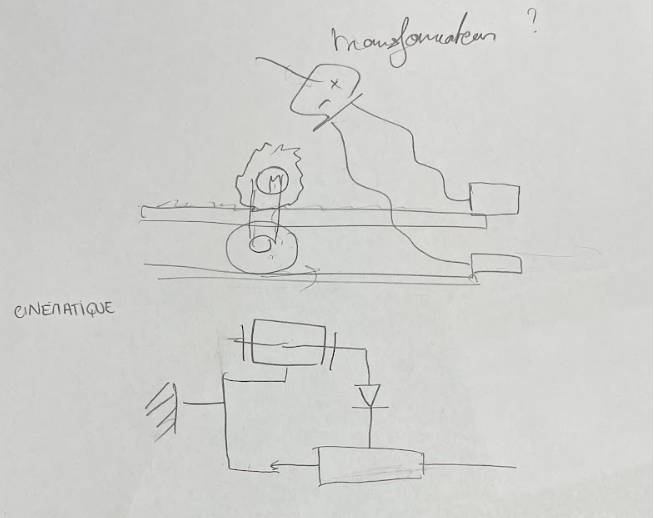 transformateur ?
M
CINÉMATIQUE